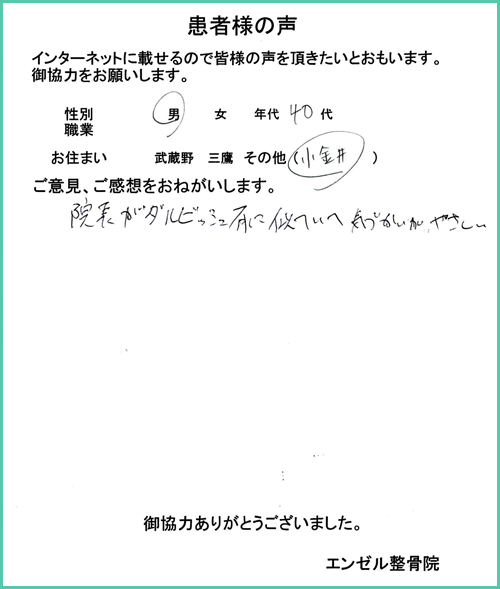 患者様の声
インターネットに載せるので皆様の声を頂きたいとおもいます。
御協力をお願いします。
性別 男 女 年代 40 代
職業
お住まい 武蔵野 三鷹 その他 (小金井)
ご意見、ご感想をおねがいします。
院長がダルビッシュ有に似ていて 気づかいが、やさしい
御協力ありがとうございました。
エンゼル整骨院